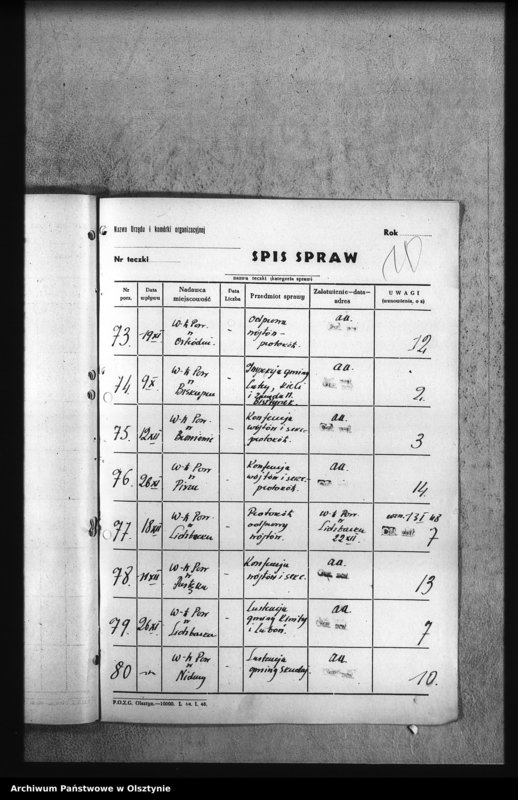 Nazwa Urzędu i komórki organizacyjnej
Rok
Nr teczki
SPIS SPRAW
10
nazwa teczki (kategoria spraw)
Nr porz. Data wpływu Nadawca miejscowość Data Liczba Przedmiot sprawy Załatwienie—data—adres UWAGI (wznowienia, o a)
73. 19 XI W-ł Pow. w Ostródzie. - odprawa wójtów - protokół. aa. 12
74. 9 X W-ł Pow w Biskupcu - Inspekcja gminy i aa. 2.
75. 12 XII W-ł Pow. w - Konferencja wójtów i sekr. protokół. aa. 3
76. 28 XI W-ł Pow w Piszu - Konferencja wójtów i sekr. - protokół. aa. 14.
77. 18 XII W-ł Pow. w Lidzbarku - Protokół odprawy wójtów. W-ł Pow. w Lidzbarku 22 XII. 13 I 48 7
78. W-ł Pow w Pasłęku - Konferencja wójtów i sekr. aa. 13
79. 26 XI W-ł Pow w Lidzbarku - Lustracja gminy i Lubomin aa. 7
80 -"- W-ł Pow w Nidzicy - Lustracja gminy aa. 10.
P.O.Z.G. Olsztyn.—10000. I. 48.
Archiwum Państwowe w Olsztynie